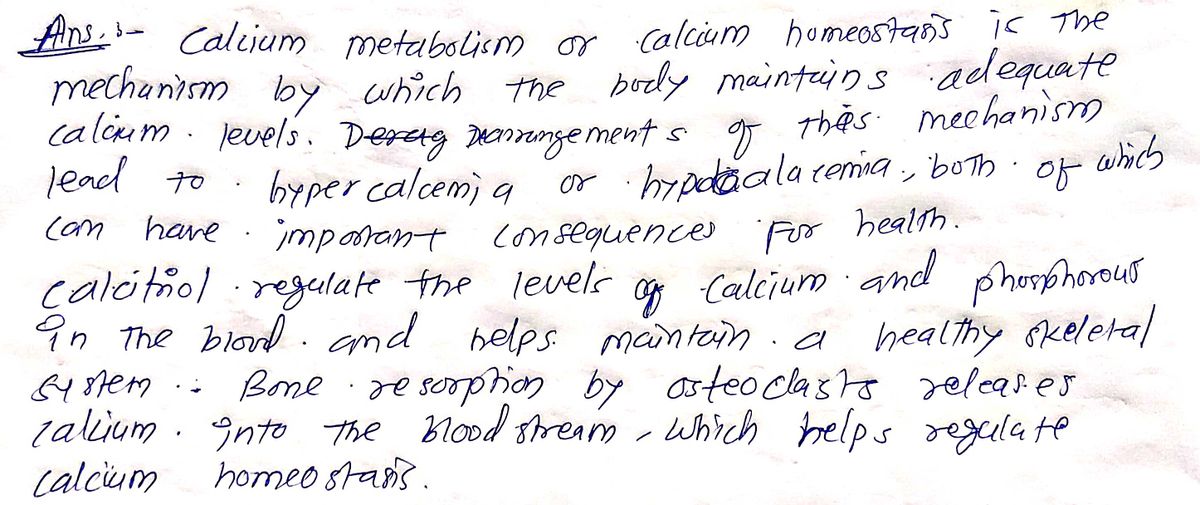 Ans. :- Calcium metabolism or calcium homeostasis is The
mechanism by which the body maintains adequate
calcium levels. Derag Dearrangements of this mechanism
lead to hypercalcemia or hypocalacemia, both of which
can have important consequences For health.
calcitriol regulate the levels of calcium and phosphorous
in The blood and helps maintain a healthy skeletal
system :- Bone resorption by osteoclasts releases
calcium into the blood stream, which helps regulate
calcium homeostasis.